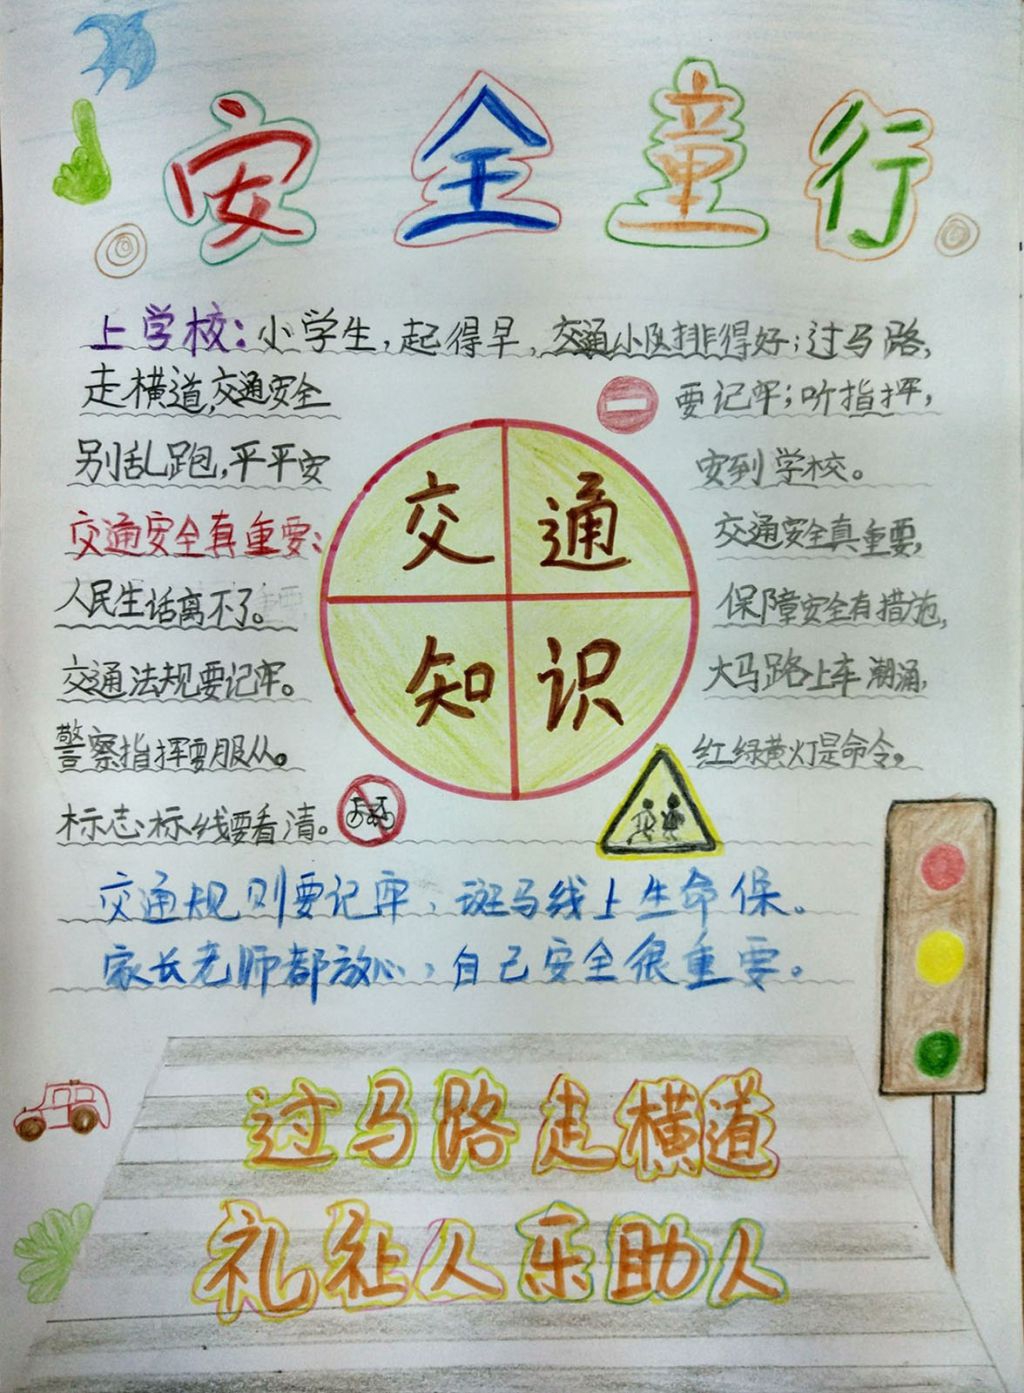 安全童行
上学校：小学生，起得早，交通小队排得好；过马路，
走横道，交通安全 要记牢；听指挥，
别乱跑，平平安 安到学校。
交通安全真重要： 交通安全真重要，
人民生活离不了。 保障安全有措施，
交通法规要记牢。 大马路上车潮涌，
警察指挥要服从。 红绿黄灯是命令。
标志标线要看清。
交通
知识
交通规则要记牢，斑马线上生命保。
家长老师都放心，自己安全很重要。
过马路走横道
礼让人乐助人